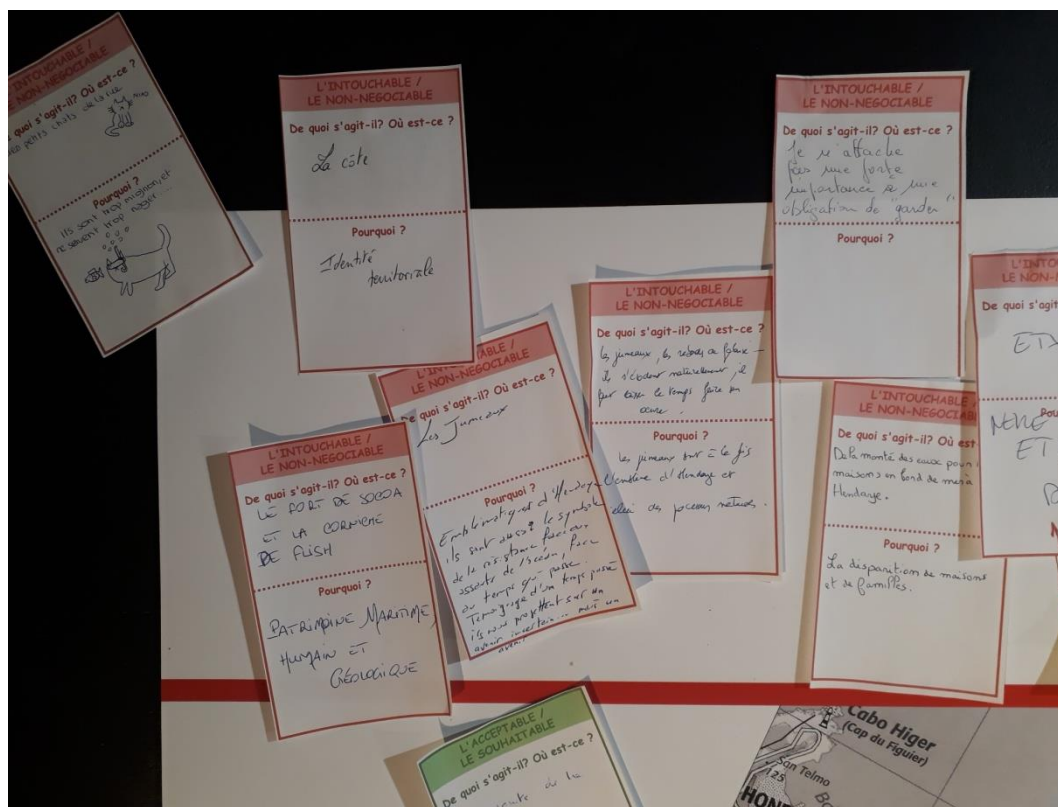 L'INTOUCHABLE /
LE NON-NEGOCIABLE
quoi s'agit-il? Où est-ce ?
petits chats de la rue
Pourquoi ?
Ils sont trop mignon, et
savent trop nager ...
L'INTOUCHABLE /
LE NON-NEGOCIABLE
De quoi s'agit-il? Où est-ce ?
La côte
Pourquoi ?
Identité
territoriale
L'INTOUCHABLE /
LE NON-NEGOCIABLE
De quoi s'agit-il? Où est-ce ?
Je n'attache
pas une forte
importance à une
obligation de "garder"
Pourquoi ?
L'INTOUCHABLE /
LE NON-NEGOCIABLE
De quoi s'agit-il? Où est-ce ?
les jumeaux, les
ils s'érodent naturellement, il
faut laisser le temps faire son
œuvre.
Pourquoi ?
Les jumeaux sont à la fois
l'emblème d'Hendaye et
celui des processus naturels.
LE NON-NEGOCIABLE
De quoi s'agit-il? Où est-ce ?
Les Jumeaux
Pourquoi ?
Emblématiques d'Hendaye
ils sont aussi le symbole
de la résistance face aux
assauts de l'océan, face
au temps qui passe.
Témoignage d'un temps passé
ils nous projettent sur un
avenir incertain ... mais un
avenir
L'INTOUCHABLE /
LE NON-NEGOCIABLE
De quoi s'agit-il? Où est-ce ?
LE FORT DE SOCOA
ET LA CORNICHE
DE FLISH
Pourquoi ?
PATRIMOINE MARITIME,
HUMAIN ET
GÉOLOGIQUE
L'INTOUCHABLE
LE NON-NEGOCIAB
De quoi s'agit-il? Où est
De la monté des eaux pour
maisons en bord de mer à
Hendaye.
Pourquoi ?
La disparition de maisons
et de familles.
L'INTO
LE NON-
De quoi s'agit
ETX
Pou
NERE
ET
L'ACCEPTABLE /
LE SOUHAITABLE
De quoi s'agit-il? Où est-ce ?
de la
Cabo Higer
(Cap du Figuier)
San Telmo
125
HON